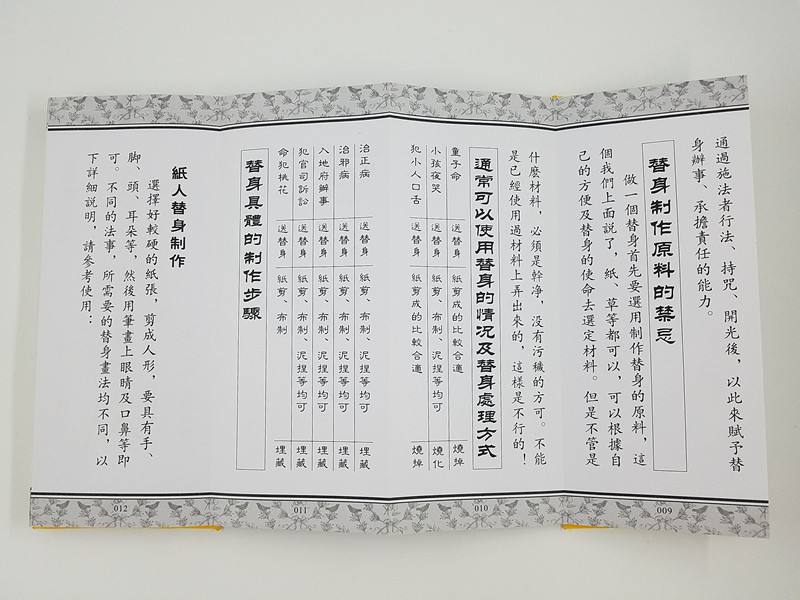 通過施法者行法、持咒、開光後，以此來賦予替
身辦事、承擔責任的能力。
替身制作原料的禁忌
做一個替身首先要選用制作替身的原料，這
個我們上面說了，紙、草等都可以，可以根據自
己的方便及替身的使命去選定材料。但是不管是
009
什麼材料，必須是幹净，没有污穢的方可。不能
是已經使用過材料上弄出來的，這樣是不行的！
通常可以使用替身的情况及替身處理方式
童子命 送替身 紙剪成的比較合適 燒掉
小孩夜哭 送替身 紙剪、布制、泥捏等均可 燒化
犯小人口舌 送替身 紙剪成的比較合適 燒掉
010
治正病 送替身 紙剪、布制、泥捏等均可 埋藏
治邪病 送替身 紙剪、布制、泥捏等均可 埋藏
入地府辦事 送替身 紙剪、布制、泥捏等均可 埋藏
犯官司訴訟 送替身 紙剪、布制、泥捏等均可 埋藏
命犯桃花 送替身 紙剪、布制、泥捏等均可 埋藏
替身具體的制作步驟
011
紙人替身制作
選擇好較硬的紙張，剪成人形，要具有手、
脚、頭、耳朵等，然後用筆畫上眼睛及口鼻等即
可。不同的法事，所需要的替身畫法均不同，以
下詳細説明，請參考使用：
012